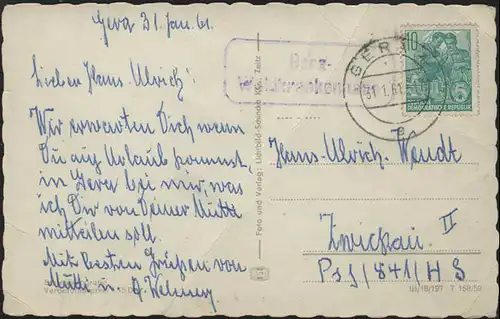 Gera 31. Jan. 61.
Lieber Hans Ulrich!
Wir erwarten Dich wenn
Du auf Urlaub kommst,
in Gera bei mir, was
ich Dir von Deiner Mutti
mitteilen soll.
Mit besten Grüßen von
Mutti u.
Gera-
Waldkrankenhaus
GERA
31.1.61
10
DEUTSCHE DEMOKRATISCHE REPUBLIK
Hans-Ulrich Wendt
Zwickau II
Psf 1841/H S
Foto und Verlag: Lichtbild-Schincke KG., Zeitz
III/18/197 T 168/59